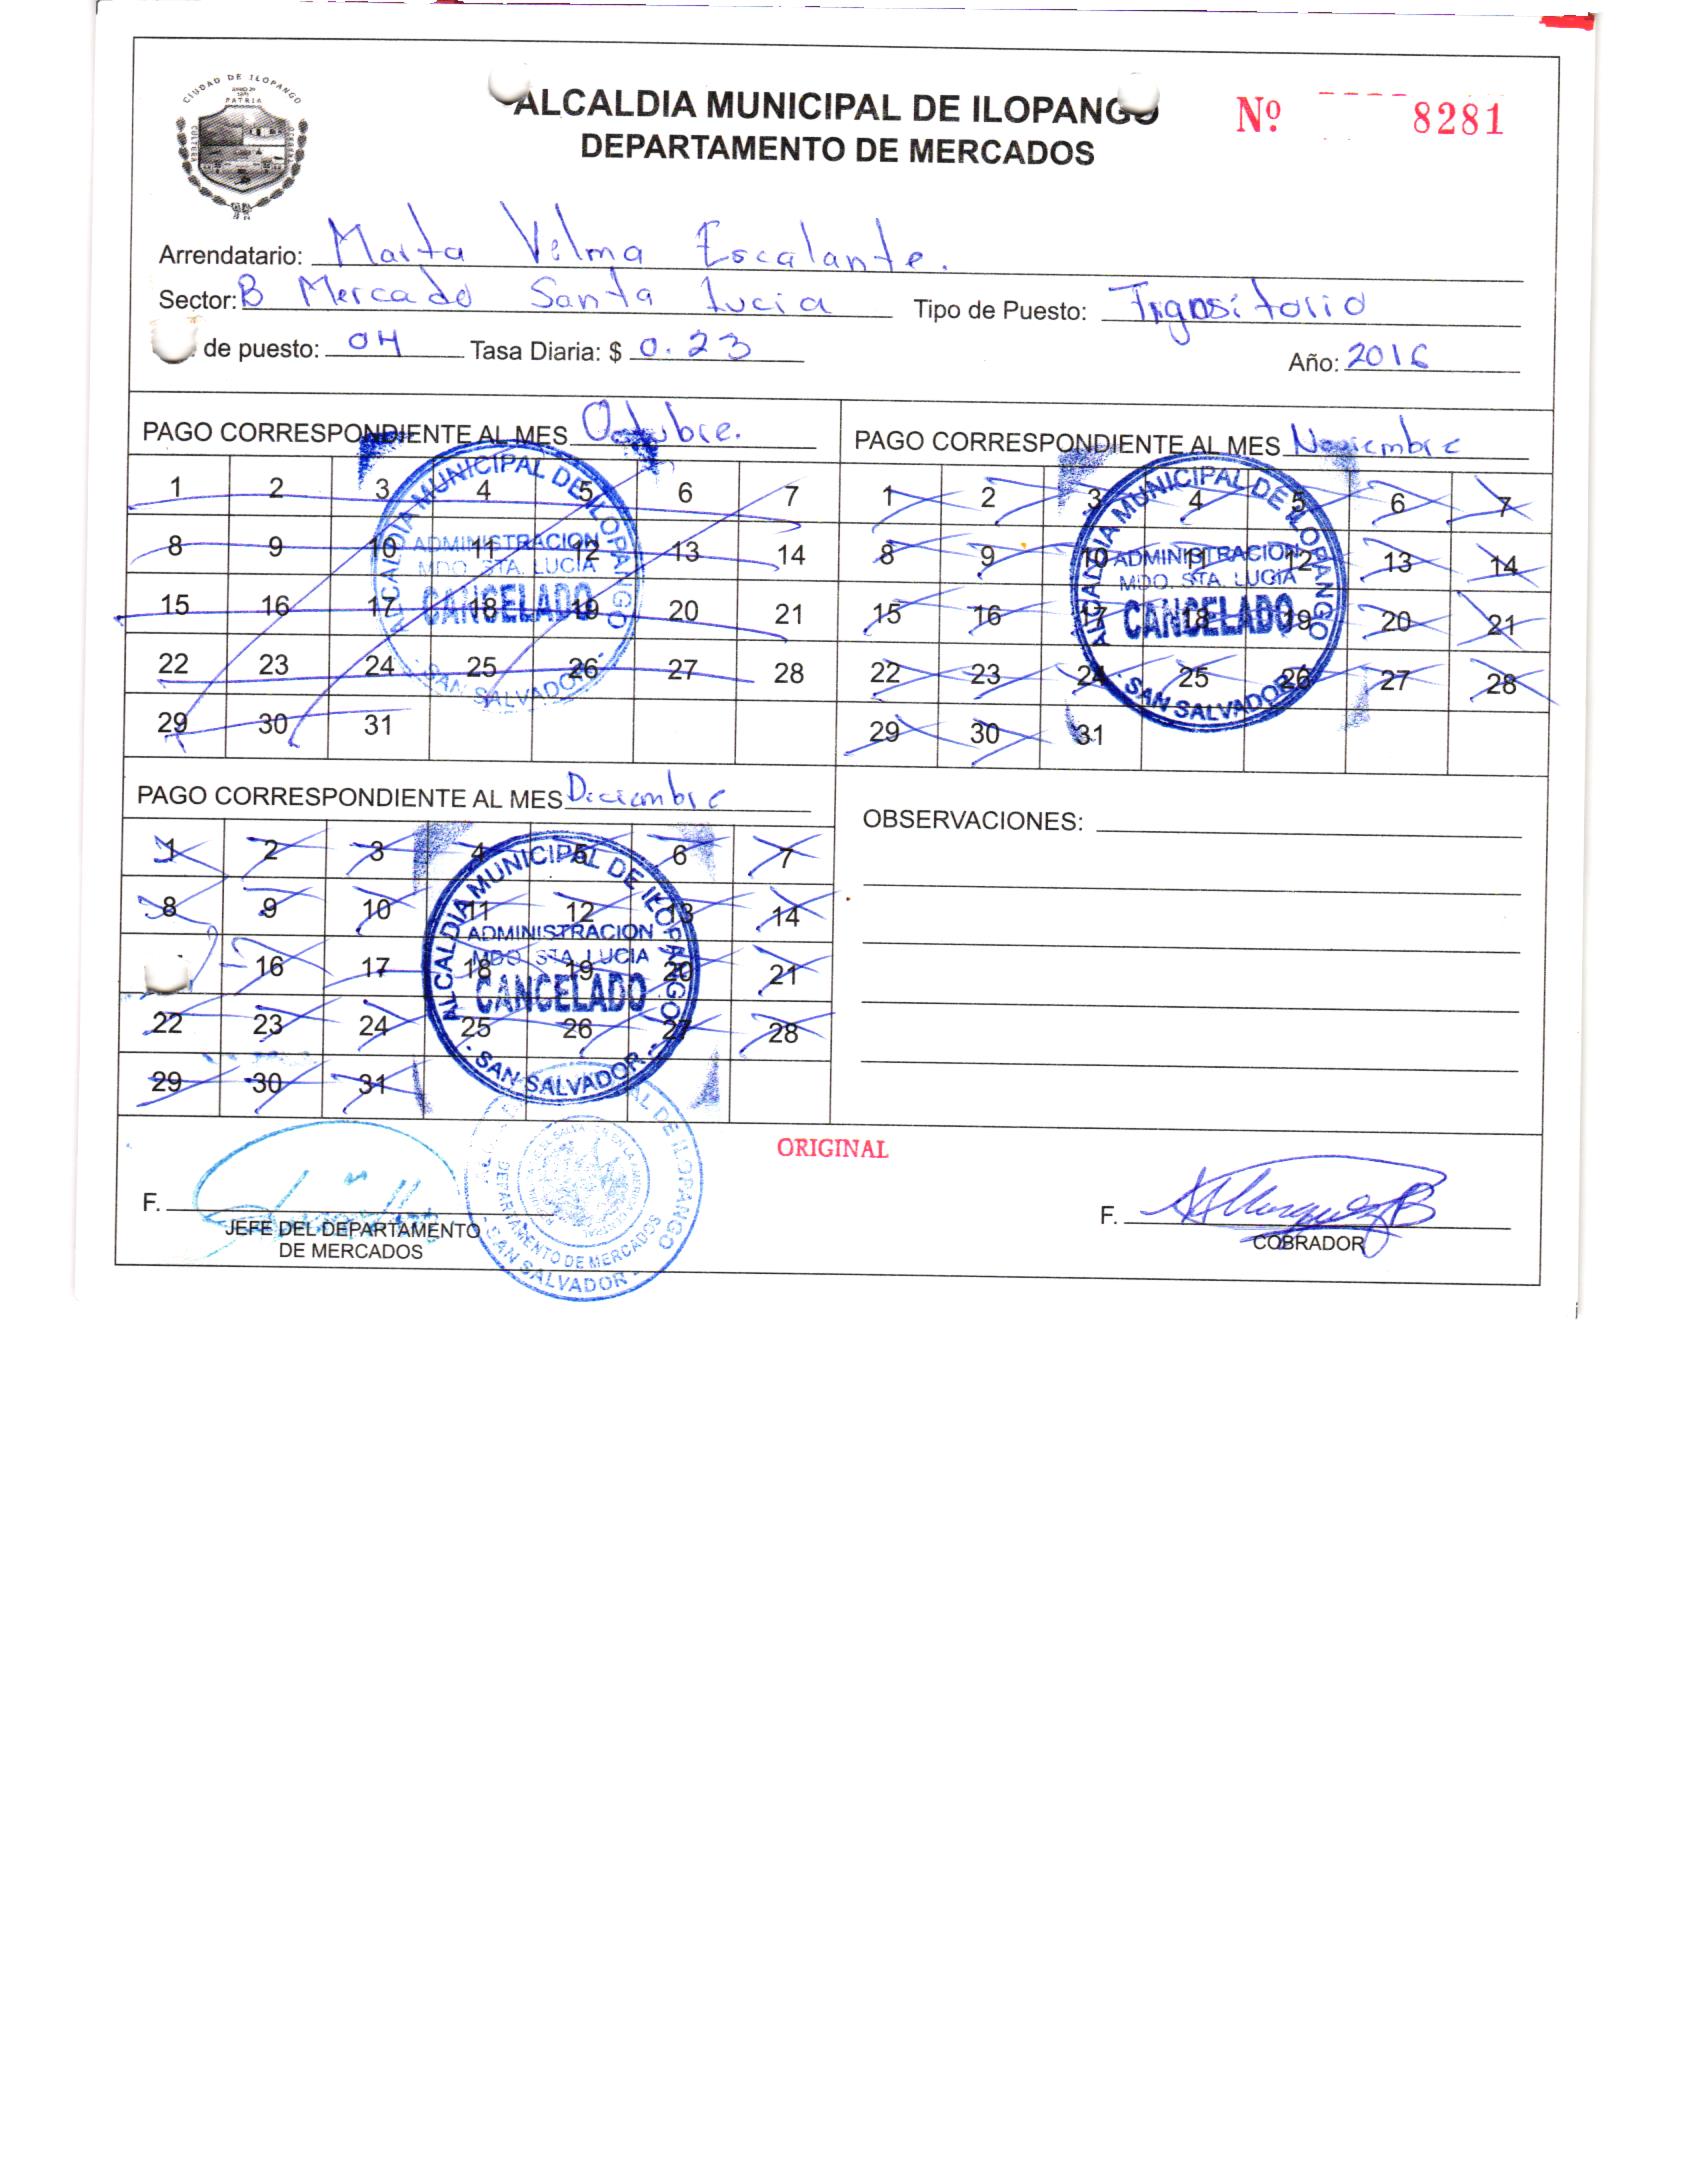 CIUDAD DE ILOPANGO
PATRIA
ALCALDIA MUNICIPAL DE ILOPANGO
DEPARTAMENTO DE MERCADOS
Nº 8281
Arrendatario: Marta Velma Escalante.
Sector: B Mercado Santa Lucia Tipo de Puesto: Transitorio
de puesto: 04 Tasa Diaria: $ 0.23 Año: 2016
PAGO CORRESPONDIENTE AL MES Octubre.
1 2 3 4 5 6 7
8 9 10 11 12 13 14
15 16 17 18 19 20 21
22 23 24 25 26 27 28
29 30 31
ALCALDIA MUNICIPAL DE ILOPANGO
ADMINISTRACION
MDO. STA. LUCIA
CANCELADO
SAN SALVADOR
PAGO CORRESPONDIENTE AL MES Noviembre
1 2 3 4 5 6 7
8 9 10 11 12 13 14
15 16 17 18 19 20 21
22 23 24 25 26 27 28
29 30 31
ALCALDIA MUNICIPAL DE ILOPANGO
ADMINISTRACION
MDO. STA. LUCIA
CANCELADO
SAN SALVADOR
PAGO CORRESPONDIENTE AL MES Diciembre
1 2 3 4 5 6 7
8 9 10 11 12 13 14
16 17 18 19 20 21
22 23 24 25 26 27 28
29 30 31
ALCALDIA MUNICIPAL DE ILOPANGO
ADMINISTRACION
MDO. STA. LUCIA
CANCELADO
SAN SALVADOR
OBSERVACIONES:
ORIGINAL
F.
JEFE DEL DEPARTAMENTO
DE MERCADOS
AL DE ILOPANGO
DEPARTAMENTO DE MERCADOS
SAN SALVADOR
F.
COBRADOR